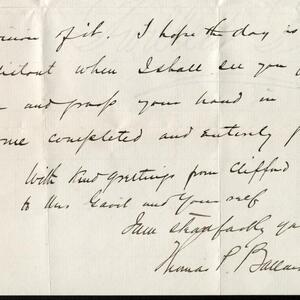 of it. I hope the day is
when I shall see you
and grasp your hand in
completed and entirely
With kind greetings from Clifford
to Mrs Gavit and yourself
I am steadfastly yo
Thomas P. Ballar